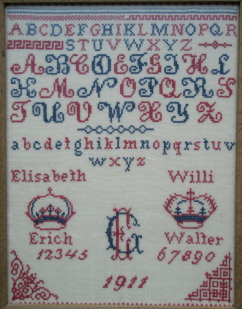 ABCDEFGHIKLMNOPQR
STUVWXYZ
ABCDEFGHIL
KMNOPQRS
TUVWXYZ
abcdefghiklmnopqrstuvw
xyz
Elisabeth Willi
Erich Walter
12345 67890
1911